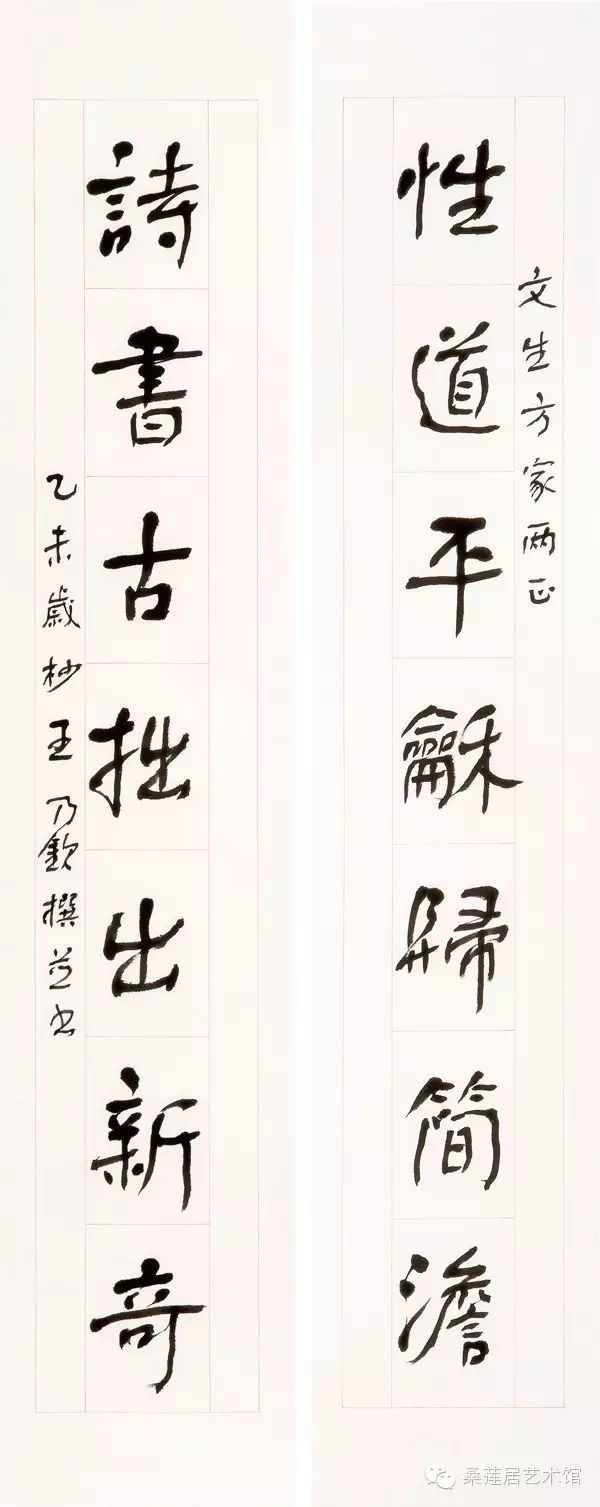 文生方家两正
性道平龢歸簡澹
詩書古拙出新奇
乙未歲杪王乃欽撰并书
桑莲居艺术馆